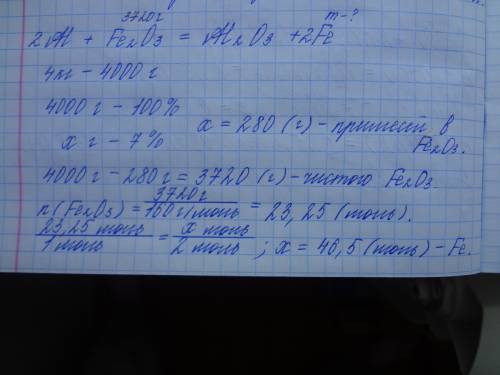 3720г m-?
2Al + Fe₂O₃ = Al₂O₃ + 2Fe
4кг - 4000 г
4000 г - 100%
x г - 7% x = 280 (г) - примесей в Fe₂O₃.
4000 г - 280 г = 3720 (г) - чистого Fe₂O₃
n(Fe₂O₃) = 3720 г / 160 г/моль = 23,25 (моль).
23,25 моль / 1 моль = x моль / 2 моль ; x = 46,5 (моль) - Fe.